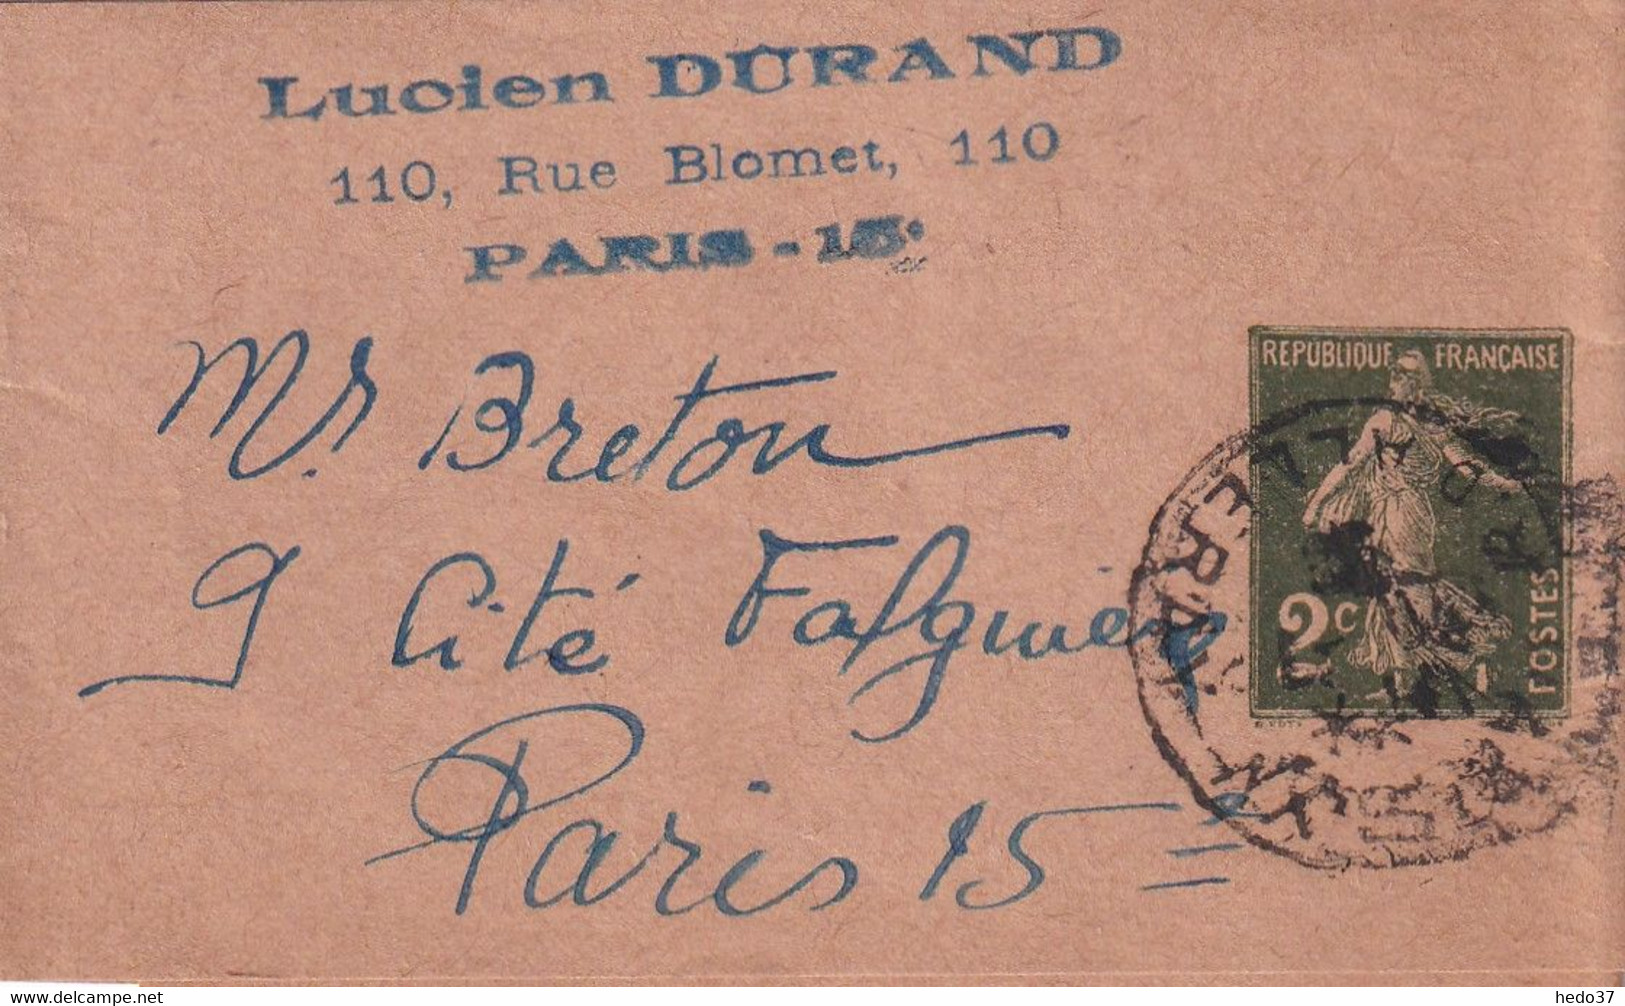 Lucien DURAND
110, Rue Blomet, 110
PARIS - 15e
Mr Breton
9 Cité Falguière
Paris 15e
REPUBLIQUE FRANÇAISE
2c
POSTES
Delcampe.net
hedo37